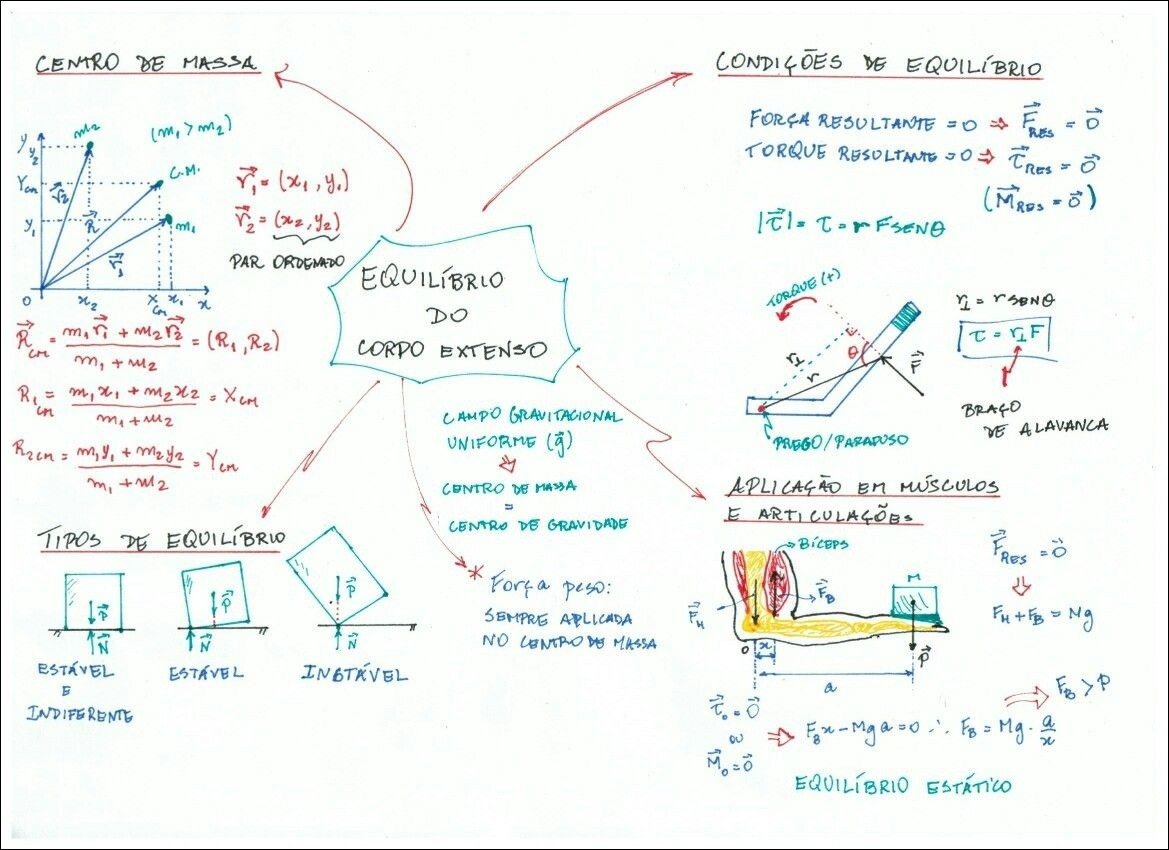 CENTRO DE MASSA
y
y₂
Ycm
y₁
m₂
(m₁ > m₂)
C.M.
m₁
r⃗₂
R⃗
r⃗₁
0
x₂
Xcm
x₁
x
r⃗₁ = (x₁, y₁)
r⃗₂ = (x₂, y₂)
PAR ORDENADO
R⃗cm = (m₁r⃗₁ + m₂r⃗₂)/(m₁ + m₂) = (R₁, R₂)
R₁cm = (m₁x₁ + m₂x₂)/(m₁ + m₂) = Xcm
R₂cm = (m₁y₁ + m₂y₂)/(m₁ + m₂) = Ycm
EQUILÍBRIO
DO
CORPO EXTENSO
CONDIÇÕES DE EQUILÍBRIO
FORÇA RESULTANTE = 0 ⇒ F⃗RES = 0⃗
TORQUE RESULTANTE = 0 ⇒ τ⃗RES = 0⃗
(M⃗RES = 0⃗)
|τ⃗| = τ = r F SENθ
TORQUE (+)
r⊥
r
θ
F⃗
PREGO/PARAFUSO
r⊥ = r SENθ
τ = r⊥F
BRAÇO
DE ALAVANCA
CAMPO GRAVITACIONAL
UNIFORME (g⃗)
⇓
CENTRO DE MASSA
=
CENTRO DE GRAVIDADE
* Força peso:
SEMPRE APLICADA
NO CENTRO DE MASSA
TIPOS DE EQUILÍBRIO
P⃗
N⃗
ESTÁVEL
E
INDIFERENTE
P⃗
N⃗
ESTÁVEL
P⃗
N⃗
INSTÁVEL
APLICAÇÃO EM MÚSCULOS
E ARTICULAÇÕES
BÍCEPS
F⃗H
F⃗B
M
0
x
a
P⃗
F⃗RES = 0⃗
⇓
FH + FB = Mg
τ⃗₀ = 0⃗
OU
M⃗₀ = 0⃗
⇒ FBx − Mga = 0 ∴ FB = Mg · a/x
⇒ FB > P
EQUILÍBRIO ESTÁTICO